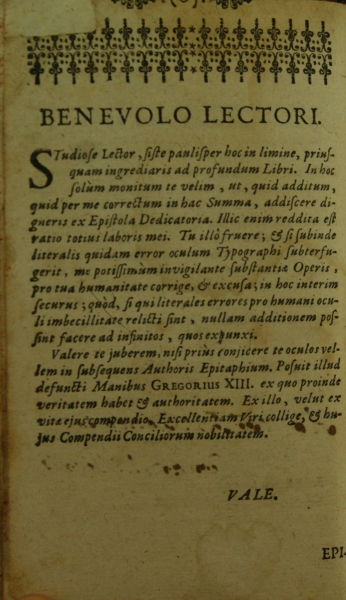 BENEVOLO LECTORI.
STudiose Lector, siste paulisper hoc in limine, prius-
quam ingrediaris ad profundum Libri. In hoc
solùm monitum te velim, ut, quid additum,
quid per me correctum in hac Summa, addiscere di-
gneris ex Epistola Dedicatoria. Illic enim reddita est
ratio totius laboris mei. Tu illò fruere; & si subinde
literalis quidam error oculum Typographi subterfu-
gerit, me potissimùm invigilante substantiæ Operis,
pro tua humanitate corrige, & excusa; in hoc interim
securus; quòd, si qui literales errores pro humani ocu-
li imbecillitate relicti sint, nullam additionem pos-
sint facere ad infinitos, quos expunxi.
Valere te juberem, nisi priùs conjicere te oculos vel-
lem in subsequens Authoris Epitaphium. Posuit illud
defuncti Manibus GREGORIUS XIII. ex quo proinde
veritatem habet & authoritatem. Ex illo, velut ex
vitæ ejus compendio, Excellentiam Viri collige, & hu-
jus Compendii Conciliorum nobilitatem.
VALE.
EPI-